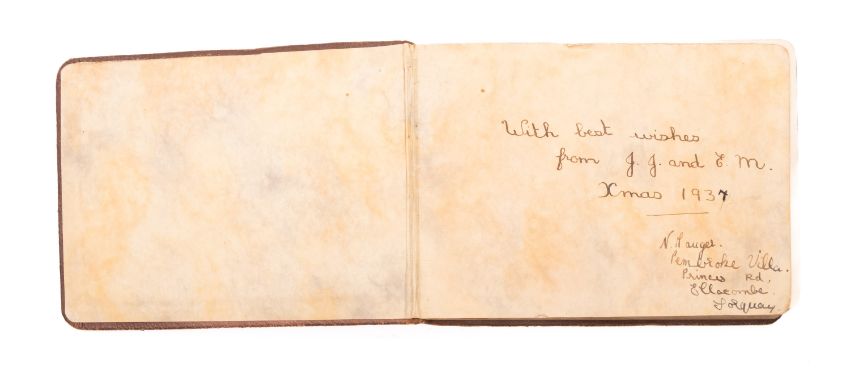 With best wishes
from J. J. and E. M.
Xmas 1937
N.
Pembroke Villa.
Princes Rd,
Ellacombe.
Torquay